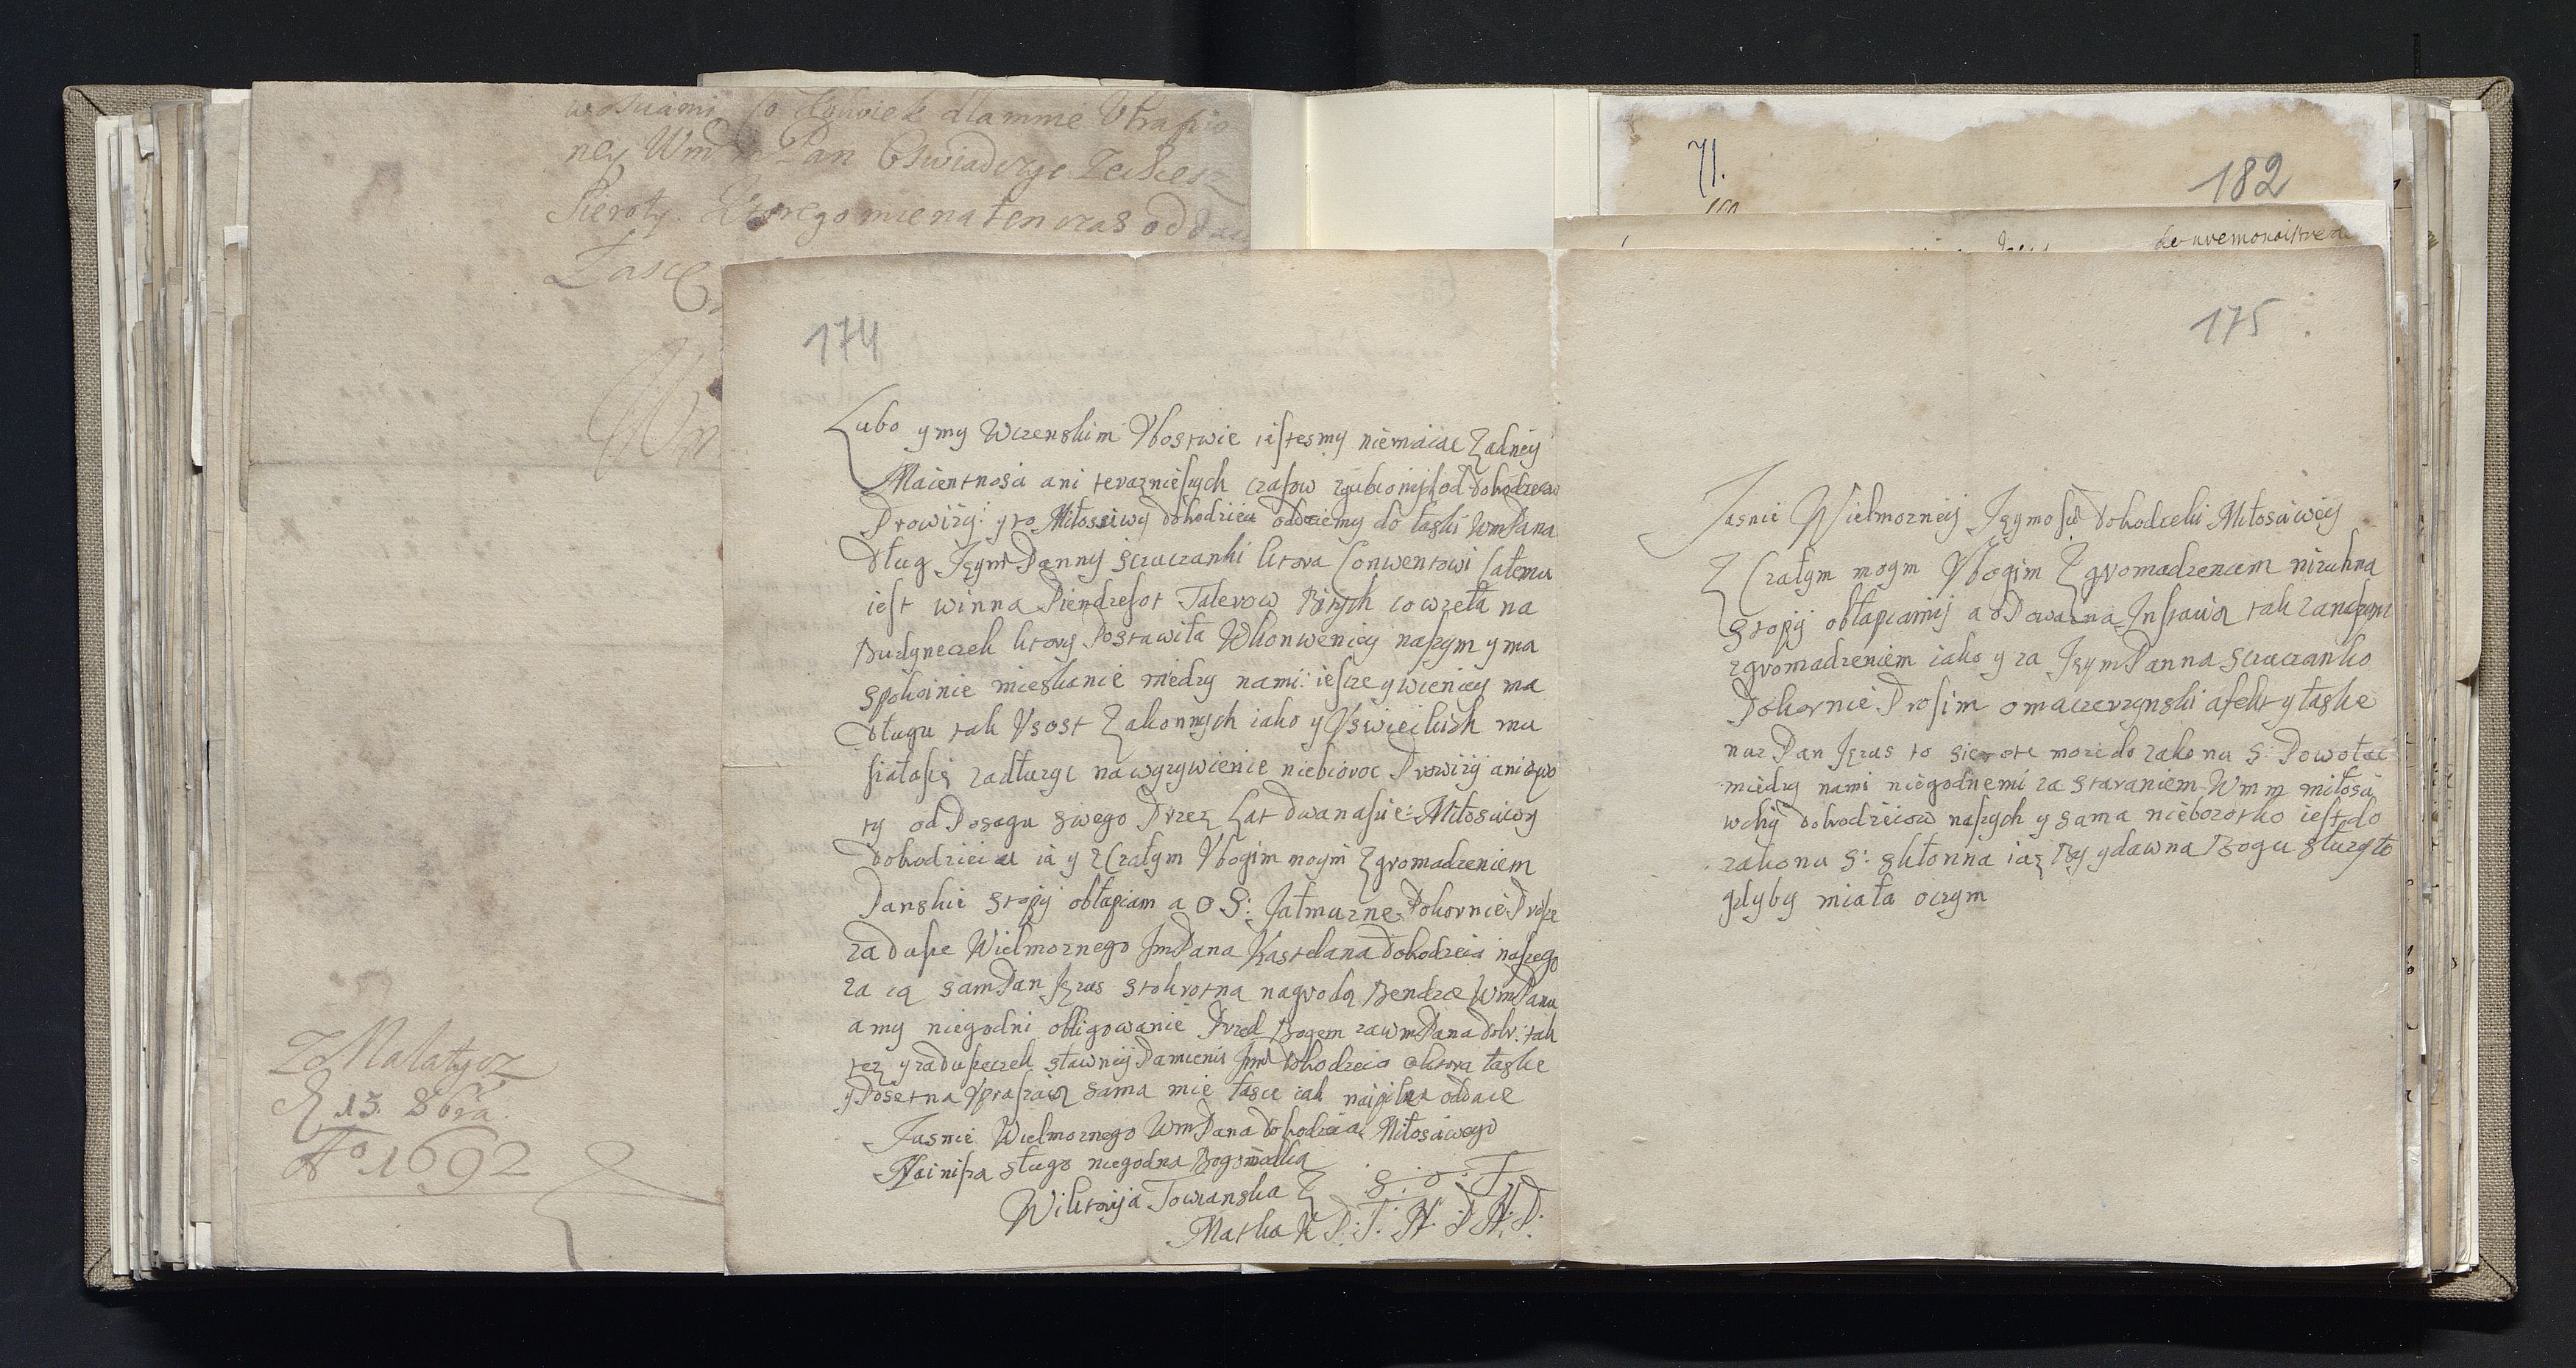 wosciami co człowiek dlamnie Utrapio
ney Wm Pan Oswiadczyc Zechcesz
Sieroty. Ktorego mie na ten czas oddaw
Łasce
Wm
Z Małatycz
D 13. 8bra
Ao 1692
174
Lubo y my Wczenskim Vbostwie iestesmy niemaiac Zadneÿ
Maientnosci ani terazniesych czasow zgubionÿch od dobodzieiow
Prowizÿ: y to Miłosciwÿ dobodzieiu oddaiemy do łaski WmPana
Dług Jeÿm Pannÿ sczuczanki ktora Conwentowi Całemu
iest winna Piendzesot Talerow Bitych co wzeła na
Budyneczek ktory Postawiła Wkonwenciey naszym y ma
spokoinie mieskanie miedzy nami: iescze y wiencey ma
Długu tak Vsost Zakonnych iako y Vswieckich mu
siałasię zadłuzyc na wyzywienie niebioroc Prowizÿ ani kwo
ty od Posagu swego Przez Lat dwanascie: Miłosciwy
Dobodzieiu ia y z Czałym Vbogim moym Zgromadzeniem
Panskie stopÿ obłapiam a O S: Jałmuzne Pokornie Prosze
za dusze Wielmoznego JmPana Kastelana dobodzieia naszego
za co sam Pan Jezus stokrotna nagrodo Bendzie WmPanu
a my niegodni obligowanie Przed Bogem za wmPana dobr: tak
tez y za duszeczek sławneÿ Pamienci Jmci dobodzieia o ktora łaske
y Posełna Vpraszaio sama mie łasce iak naipilnei oddaie
Jasnie Wielmoznego WmPana dobodzieia Miłosciwego
Nainisza sługo niegodna Bogomodlca
Wiktorÿa Towianska Z S: O: F
Matka K P: T: N: P N: P.
71.
182
175
Jasnie Wielmozneÿ Jeÿmosci Dobodzieki Miłosciweÿ
Z Czałym moym Vbogim Zgromadzeniem nizuhna
stopÿ obłapiamÿ a oddawszna Instancio tak za naszem
zgromadzeniem iako y za JeymPanna Sczuczanko
Pokornie Prosim o macierzynski afekt y łaske
nuz Pan Jezus to sierote moze do zakonu S: Powołac
miedzy nami niegodnemi za staraniem Wm m miłosci
wchÿ dobodzieiow naszych y sama nieborotko iest do
zakonu S: skłonna iaz By y dawna Bogu słuzyło
gdyby miała oczym